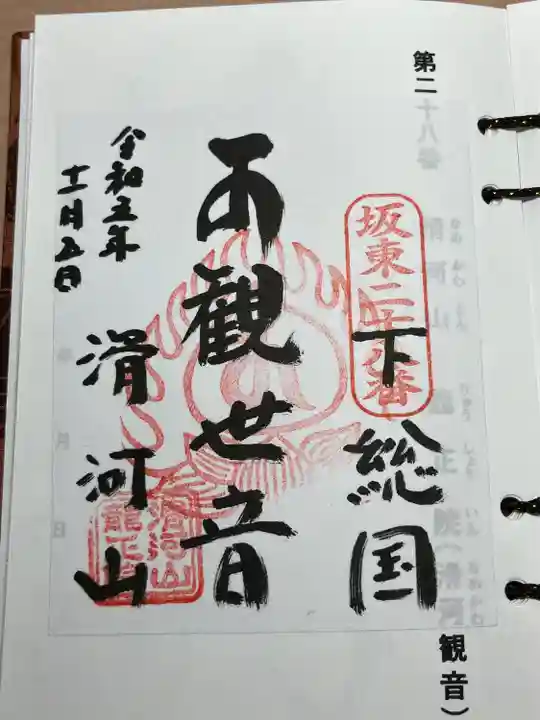 第二十八番
滑河山 龍正院(滑河
観音)
坂東二十八番
下総国
観世音
滑河山
令和五年
十一月五日